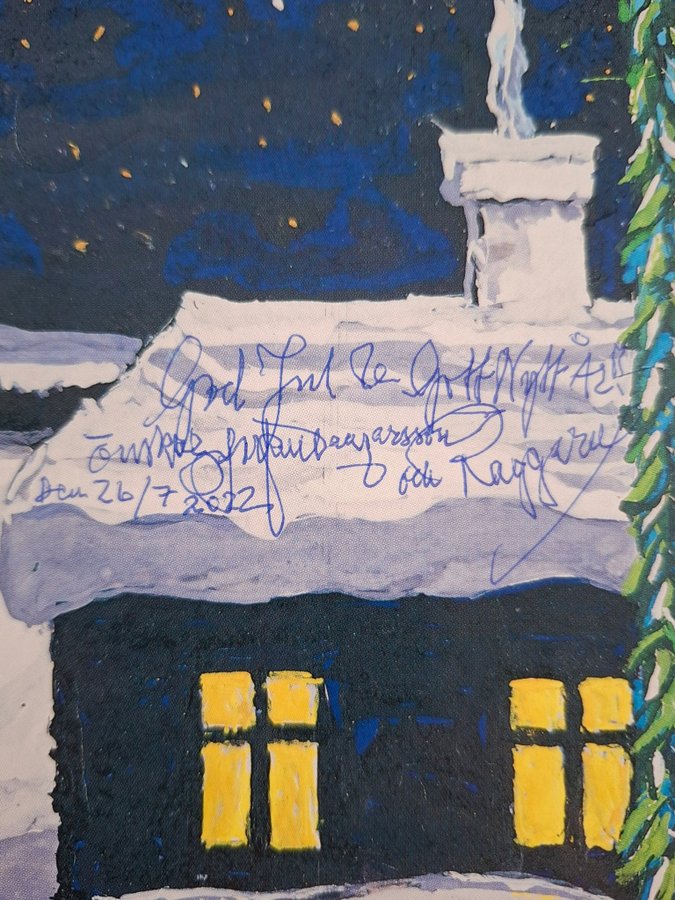 God Jul & Gott Nytt År!!
önskar Dagarsson
och Raggaren
Den 26/7 2022